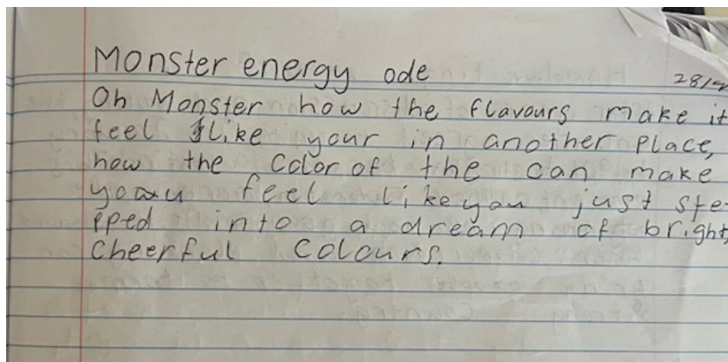 Monster energy ode
28/
Oh Monster how the flavours make it
feel like your in another place,
how the color of the can make
you feel like you just ste-
pped into a dream of bright,
cheerful colours.